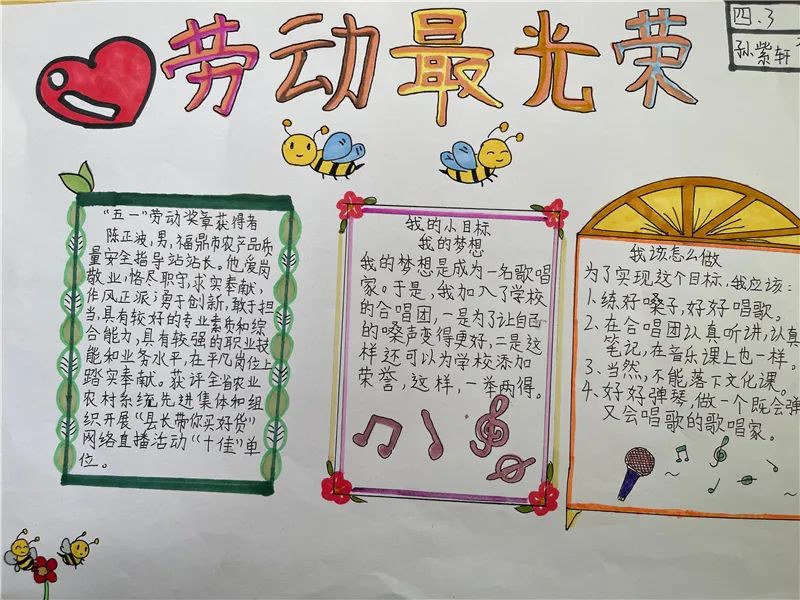 劳动最光荣
四.3
孙紫轩
“五一”劳动奖章获得者
陈正波,男,福鼎市农产品质
量安全指导站站长。他爱岗
敬业,恪尽职守,求实奉献,
作风正派;勇于创新,敢于担
当,具有较好的专业素质和综
合能力,具有较强的职业技
能和业务水平,在平凡岗位上
踏实奉献。获评全省农业
农村系统先进集体和组
织开展“县长带你买好货”
网络直播活动“十佳”单
位。
我的小目标
我的梦想
我的梦想是成为一名歌唱
家。于是,我加入了学校
的合唱团,一是为了让自己
的嗓声变得更好,二是这
样还可以为学校添加
荣誉,这样,一举两得。
我该怎么做
为了实现这个目标,我应该:
1.练好嗓子,好好唱歌。
2.在合唱团认真听讲,认真
笔记,在音乐课上也一样。
3.当然,不能落下文化课。
4.好好弹琴,做一个既会弹
又会唱歌的歌唱家。